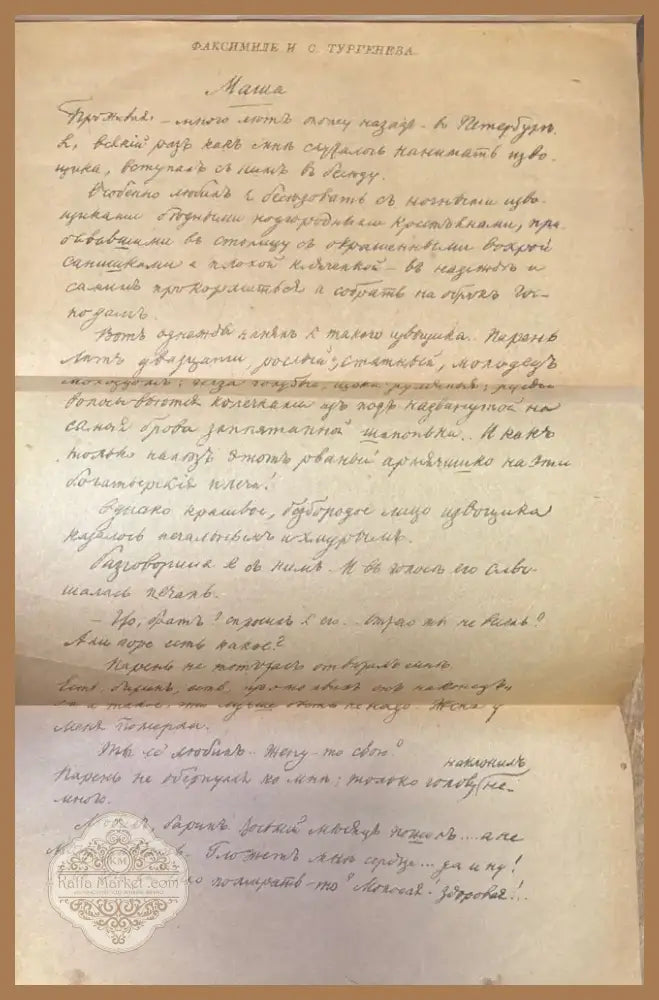 ФАКСИМИЛЕ И. С. ТУРГЕНЕВА.
Маша
Проживая – много лѣтъ тому назадъ – въ Петербургѣ,
я, всякій разъ какъ мнѣ случалось нанимать изво-
щика, вступалъ съ нимъ въ бесѣду.
Особенно любилъ я бесѣдовать съ ночными изво-
щиками бѣдными подгородными крестьянами, при-
бывавшими въ столицу съ окрашенными вохрой
санишками и плохой клячонкой – въ надеждѣ и
самимъ прокормиться и собрать на оброкъ гос-
подамъ.
Вотъ однажды нанялъ я такого извощика.. Парень
лѣтъ двадцати, рослый, статный, молодецъ
молодцомъ; глаза голубые, щоки румяныя; русые
волосы вьются колечками изъ подъ надвинутой на
самыя брови заплатанной шапоньки.. И какъ
только налѣзъ этотъ рваный армячишко на эти
богатырскія плеча!
Однако красивое, безбородое лицо извощика
казалось печальнымъ и хмурымъ.
Разговорился я съ нимъ. И въ голосѣ его слы-
шалась печаль.
– Что, братъ? спросилъ я его.. Отчего ты не веселъ?
Али горе есть какое?
Парень не тотчасъ отвѣчалъ мнѣ.
Есть, баринъ, есть, наконецъ.
Да и такое, что лучше быть не надо. Жена у
меня померла.
Ты её любилъ.. жену-то свою?
наклонилъ
Парень не обернулся ко мнѣ; только голову не-
много.
баринъ. Восьмой мѣсяцъ пошелъ... а не
Гложетъ мнѣ сердце... да и ну!
помирать-то? Молодая! Здоровая!..
KM
Kalfa Market.com